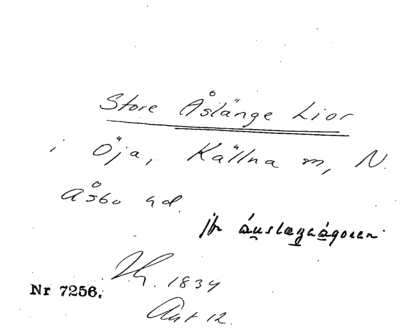 Store Åslänge Lior
i Öja, Källna sn, N.
Åsbo hd.
jfr
1834
Nr 7256.
Akt 12.